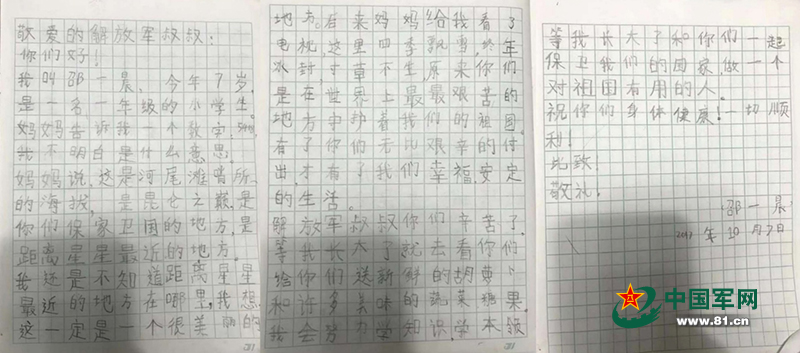 敬爱的解放军叔叔：
你们好！
我叫邵一晨，今年7岁，
是一名一年级的小学生。
妈妈告诉我一个数字，5418，
我不明白是什么意思。
妈妈说，这是河尾滩哨所
的海拔，是昆仑之巅，是
你们保家卫国的地方，是
距离星星最近的地方。
我还是不知道距离星星
最近的地方在哪里，我想
这一定是一个很美丽的
地方。后来妈妈给我看了
电视，这里四季飘雪，终年
冰封寸草不生，原来你们
是在世界上最最艰苦的
地方守护着我们的祖国。
有了你们无比艰辛的付
出，才有了我们幸福，安定
的生活。
解放军叔叔你们辛苦了。
等我长大了就去看你们
给你们送新鲜的胡萝卜
和许多美味的蔬菜糖果
我会努力学知识，学本领
等我长大了和你们一起
保卫我们的国家，做一个
对祖国有用的人。
祝你们身体健康！一切顺
利！
此致！
敬礼！
邵一晨
2017年10月7日
中国军网
www.81.cn